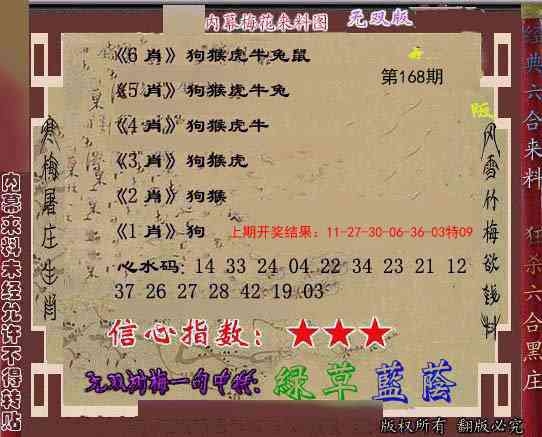 内幕梅花来料图 无双版
《6 肖》狗猴虎牛兔鼠
第168期
《5 肖》狗猴虎牛兔
《4 肖》狗猴虎牛
《3 肖》狗猴虎
《2 肖》狗猴
《1 肖》狗
上期开奖结果：11-27-30-06-36-03特09
心水码: 14 33 24 04 22 34 23 21 12
37 26 27 28 42 19 03
信心指数：★★★
无双浏梅一句中特：绿草蓝荫
寒梅屠庄生肖
风雪竹梅欲钱料
内幕来料未经允许不得转贴
经典六合来料 狂杀六合黑庄
版权所有 翻版必究